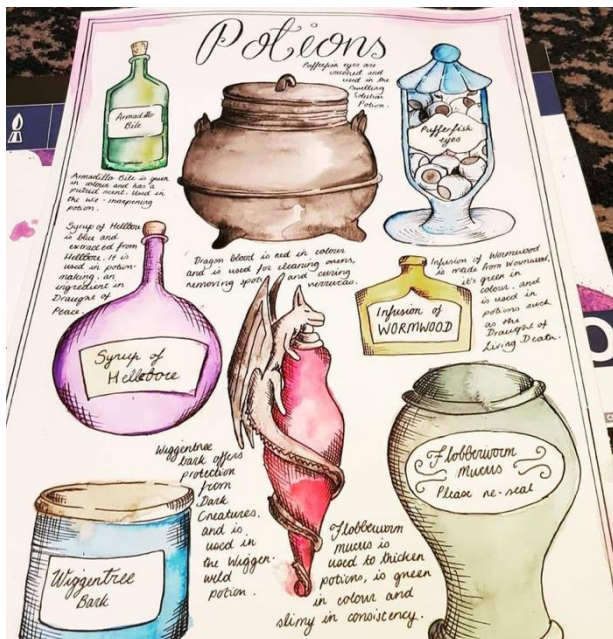 Potions
Pufferfish eyes are
and
used in the
Swelling
Solution
Potion.
Armadillo
Bile
Pufferfish
eyes
Armadillo Bile is green
in colour and has a
putrid scent. Used
in the Wit-sharpening
potion.
Syrup of Hellbore
is blue and
extracted from
Hellbore. It is
used in potion-
making, an
ingredient in
Draught of
Peace.
Dragon blood is red in colour
and is used for cleaning ovens,
removing spots and curing
verrucas.
Infusion of Wormwood
is made from Wormwood,
it's green in
colour, and
is used in
potions such
as the
Draught of
Living Death.
Syrup of
Hellebore
Infusion of
WORMWOOD
Wiggentree
bark offers
protection
from
Dark
Creatures,
and is
used in
the Wiggen-
weld
potion.
Flobberworm
Mucus
Please re-seal
Wiggentree
Bark
Flobberworm
mucus is
used to thicken
potions, is green
in colour and
slimy in consistency.